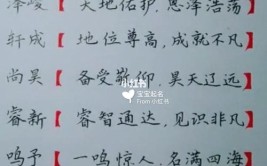 泽峻【天地佑护,恩泽浩荡
轩成【地位尊高,成就不凡】
尚昊【备受 昊天辽远】
小红书
宝宝起名
From 小红书
睿新【睿智通达,见识非凡】
鸣予【一鸣惊人,名满四海】